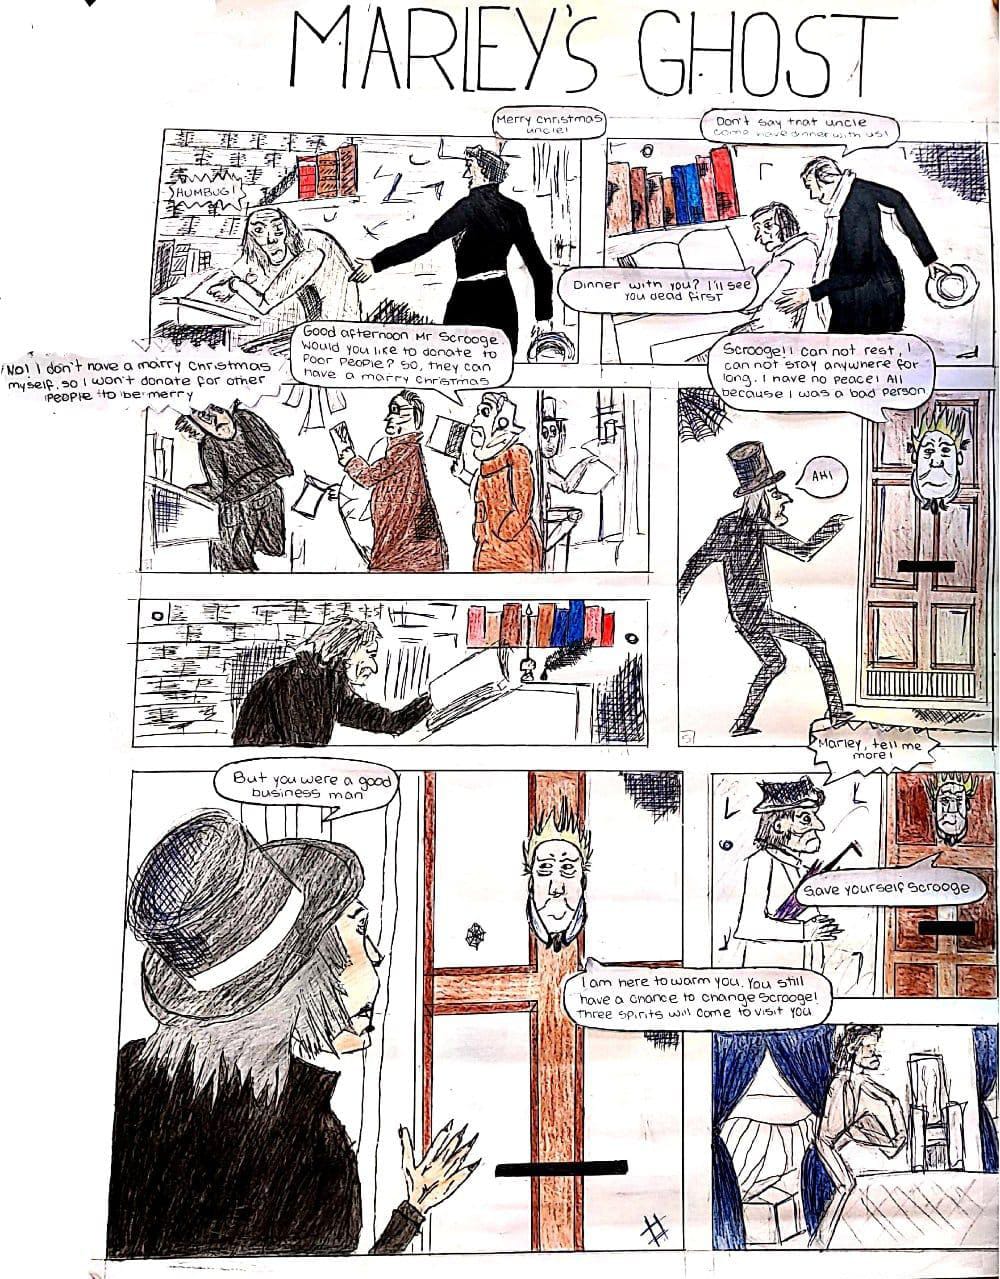 MARLEY'S GHOST
Merry christmas
uncle!
HUMBUG!
Don't say that uncle
come have dinner with us!
Dinner with you? I'll see
you dead first
Good afternoon Mr Scrooge.
Would you like to donate to
poor people? So, they can
have a marry christmas
No! I don't have a marry christmas
myself, so I won't donate for other
people to be merry
Scrooge! I can not rest, I
can not stay anywhere for
long. I have no peace! All
because I was a bad person
AH!
But you were a good
business man
I am here to warm you. You still
have a chance to change Scrooge!
Three spirits will come to visit you
Marley, tell me
more!
Save yourself Scrooge